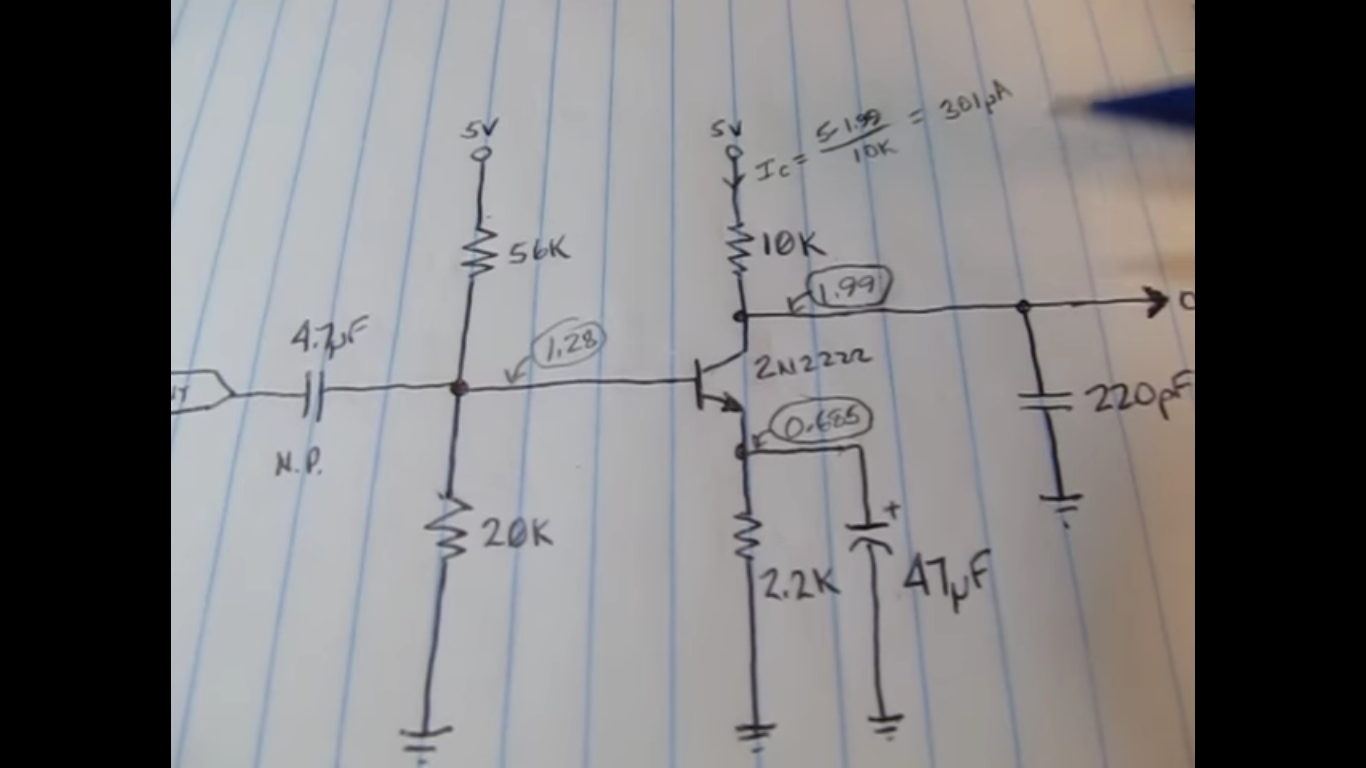 5V
5V
Ic = 5-1.99 / 10K = 301µA
56K
10K
1.99
4.7µF
1.28
2N2222
220pF
0.685
N.P.
20K
2.2K
+
47µF